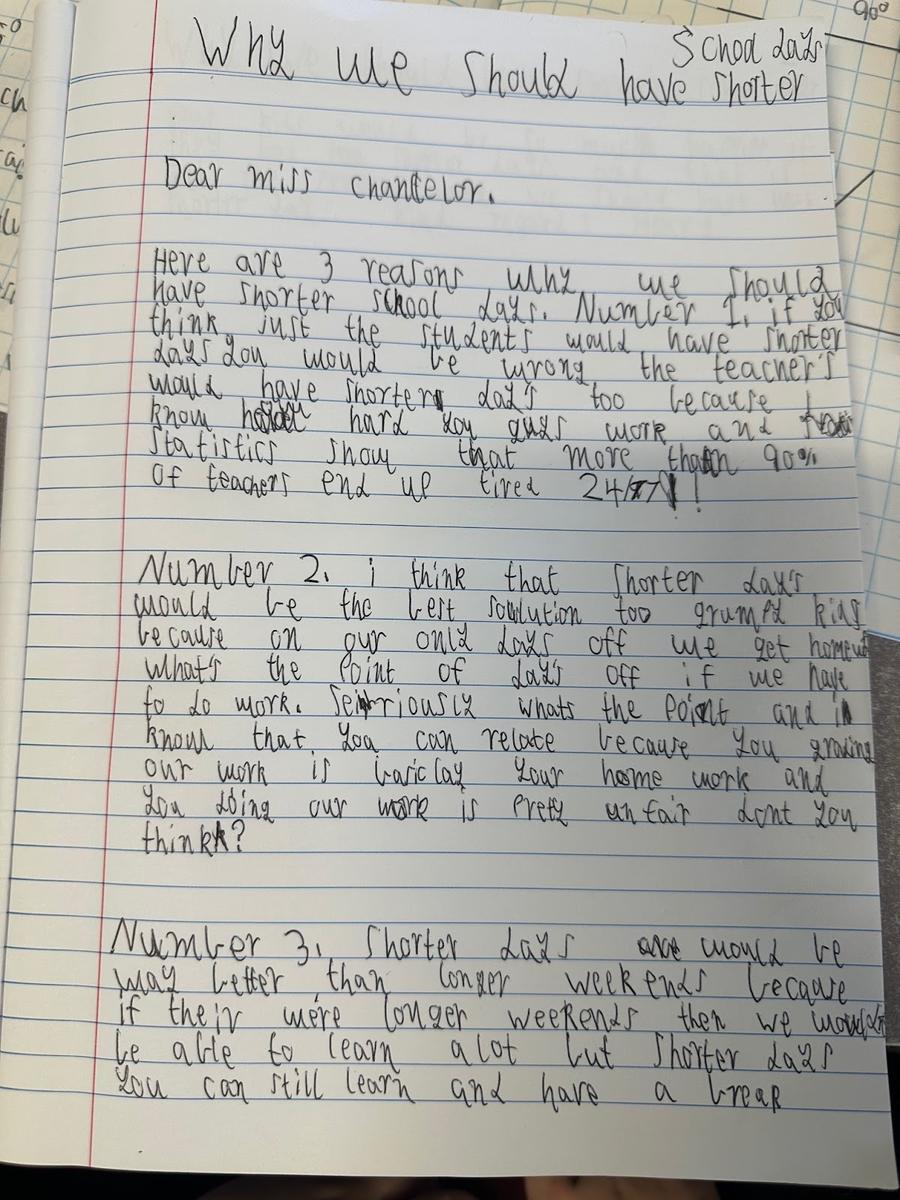 Why we should have shorter
School days
Dear miss chancelor.
Here are 3 reasons why we should
have shorter school days. Number 1. if you
think just the students would have shorter
days you would be wrong the teacher's
would have shorter day's too because I
know hard you guys work and
statistics show that more than 90%
of teachers end up tired 24/7!
Number 2. i think that shorter day's
would be the best soulution too grumpy kids
because on our only days off we get
what's the point of day's off if we have
to do work. Seriously whats the point and i
know that you can relate because you grading
our work is basiclay your home work and
you doing our work is prety unfair dont you
think?
Number 3. shorter days would be
way better than longer weekends because
if their were longer weekends then we
be able to learn alot but shorter days
you can still learn and have a break